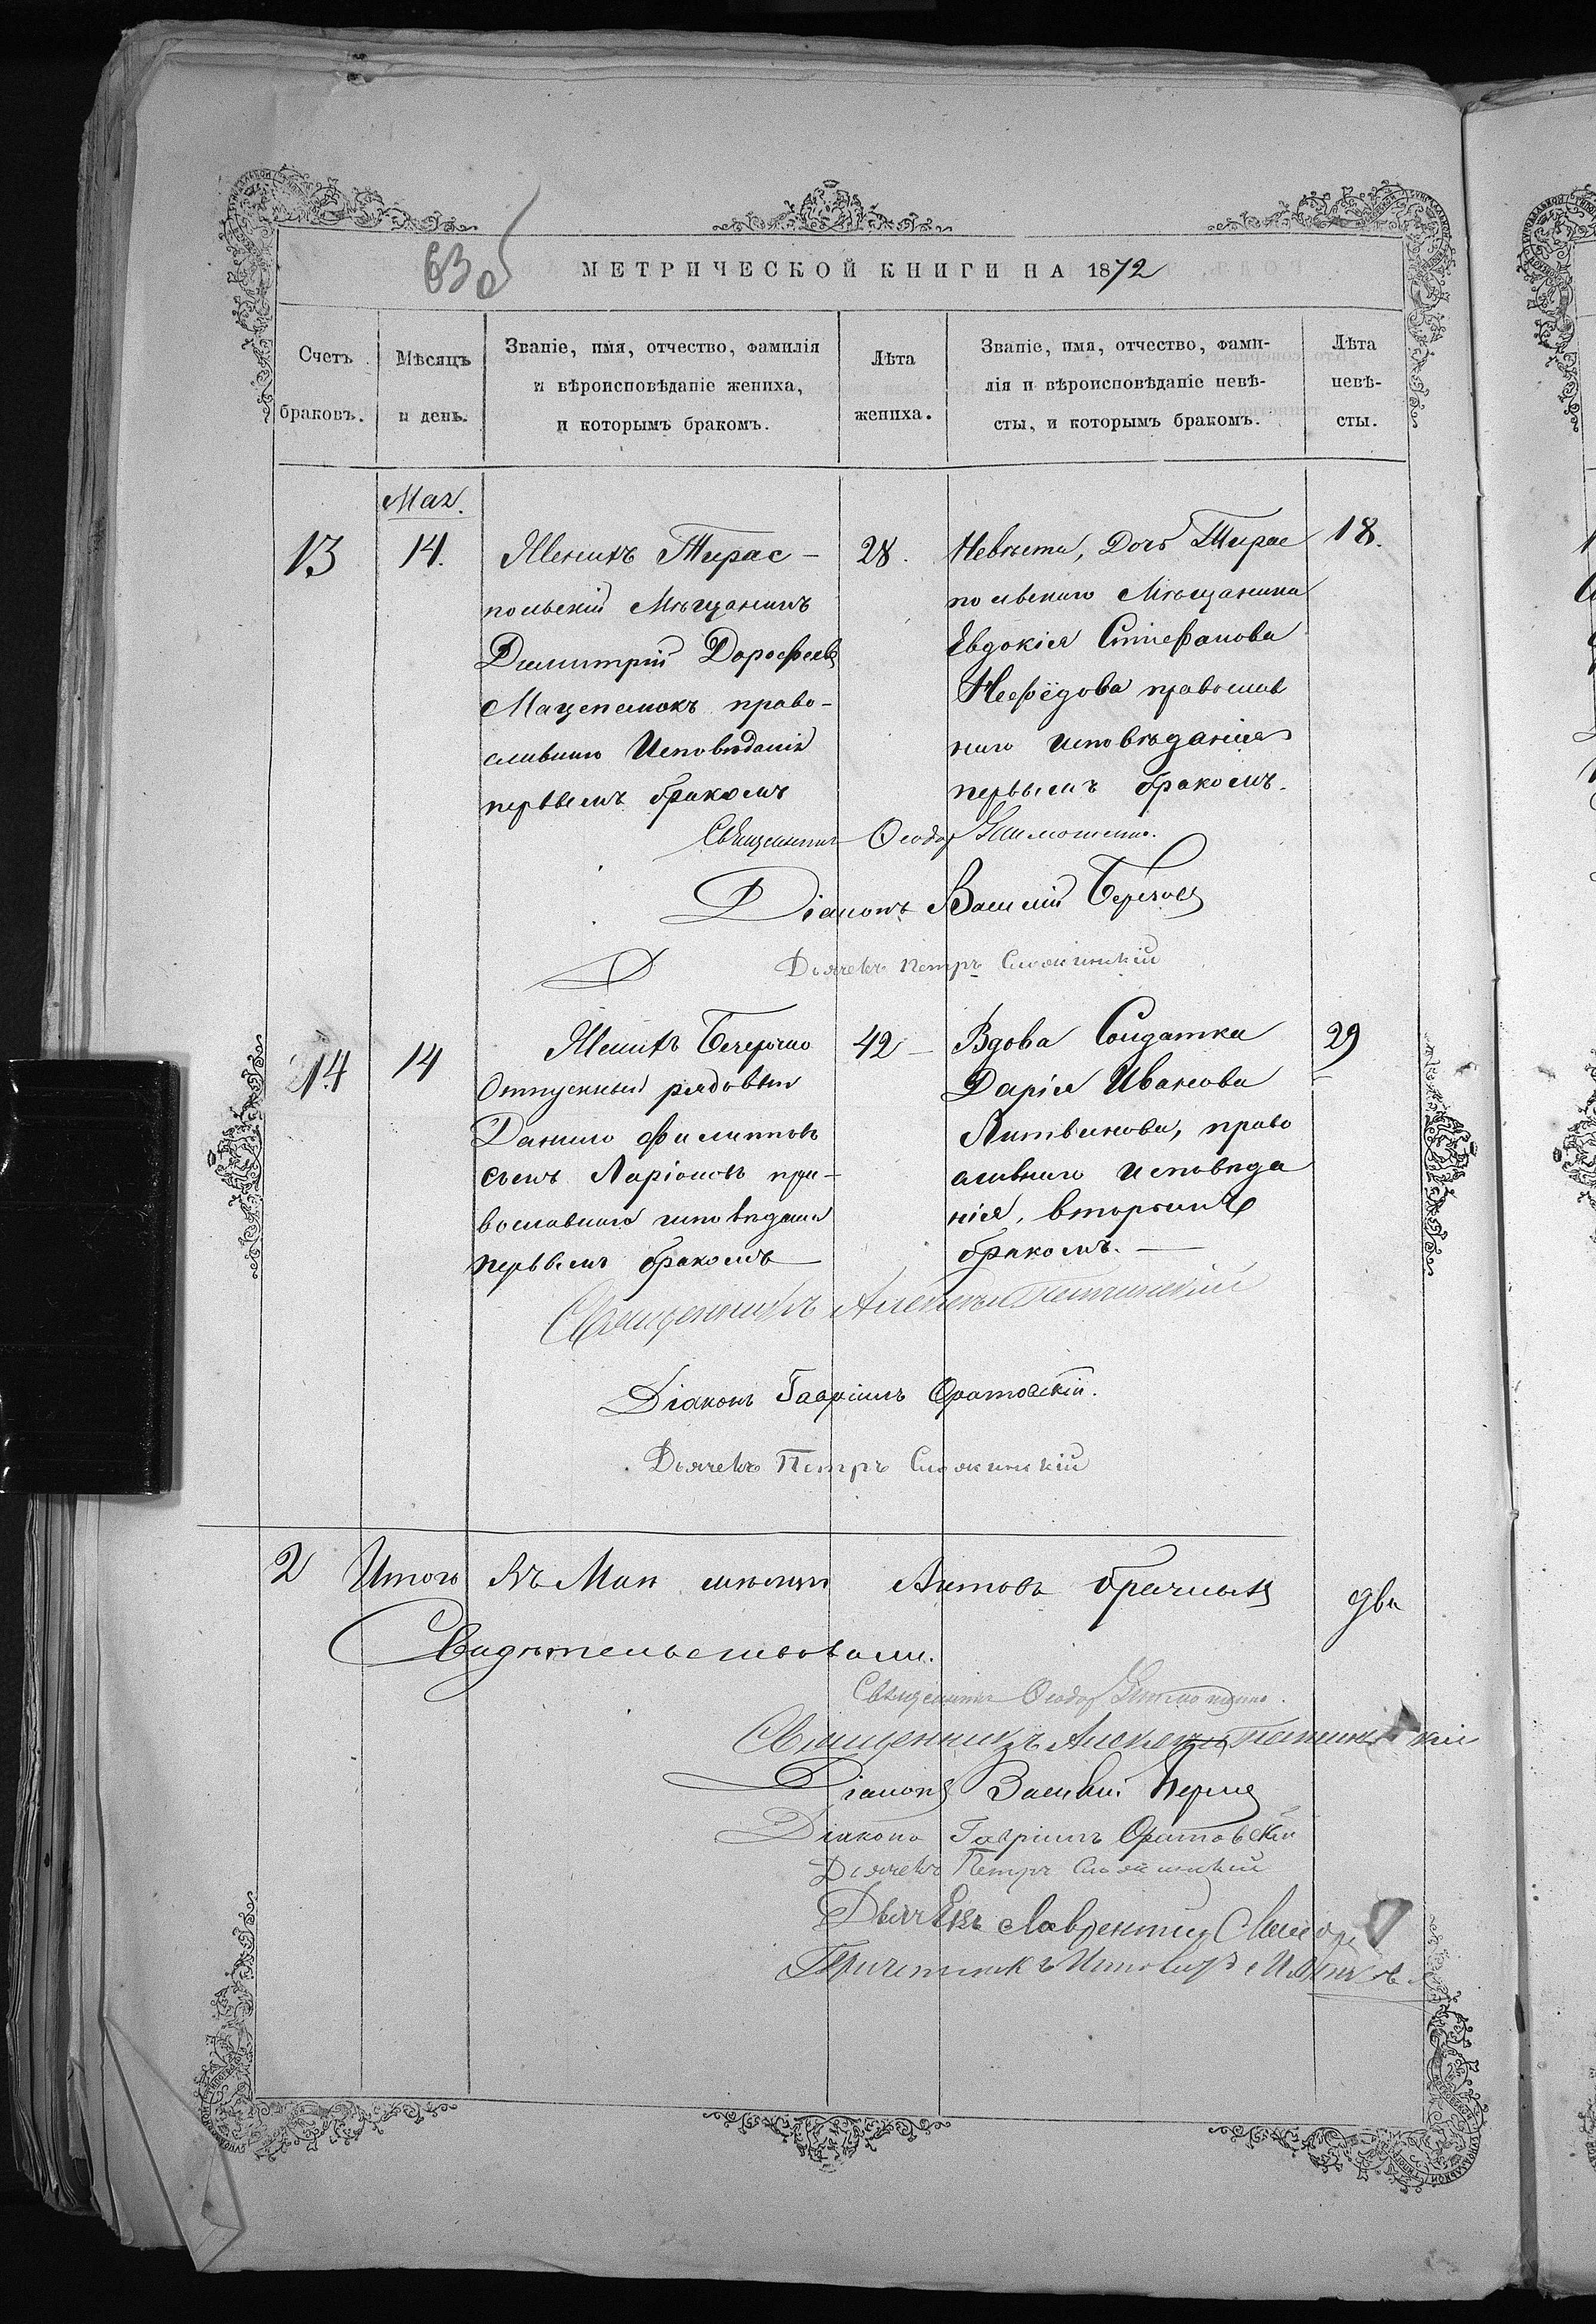 63об
МЕТРИЧЕСКОЙ КНИГИ НА 1872
Счетъ браковъ.
Мѣсяцъ и день.
Званіе, имя, отчество, фамилія
и вѣроисповѣданіе жениха,
и которымъ бракомъ.
Лѣта жениха.
Званіе, имя, отчество, фами-
лія и вѣроисповѣданіе невѣ-
сты, и которымъ бракомъ.
Лѣта невѣ-
сты.
Маа.
13
14.
Женихъ Тирас-
польскій Мѣщанинъ
Димитрій Дорофеевъ
Маценюкъ право-
славнаго Исповѣданія
первымъ бракомъ
28.
Невѣста, Дочь Тирас
польскаго Мѣщанина
Евдокія Стефанова
Нефёдова православ
наго исповѣданія
первымъ бракомъ.
18.
Священникъ Ѳеодоръ
Діаконъ Василій
Дьячекъ Петръ
14
14
Женихъ Безсрочно
Отпускный рядовый
Данило Филипповъ
сынъ Ларіоновъ пра-
вославнаго исповѣданія
первымъ бракомъ
42
Вдова Солдатка
Дарія Иванова
Литвинова, право
славнаго исповѣда
нія, вторымъ
бракомъ.
29
Священникъ Алексѣй
Діаконъ Гавріилъ Оратовскій.
Дьячекъ Петръ
2 Итого Въ Маѣ мѣсяцѣ Актовъ брачныхъ два
Свидѣтельствовали.
Священникъ Ѳеодоръ
Священникъ Алексѣй
Діаконъ Василій
Діаконъ Гавріилъ Оратовскій
Дьячекъ Петръ
Дьячекъ Лаврентій
Причетникъ